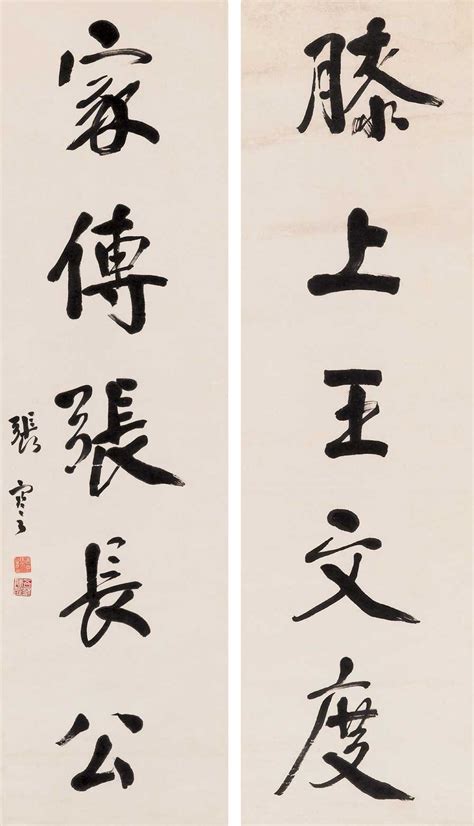 膝上王文度
家傳張長公
張寒